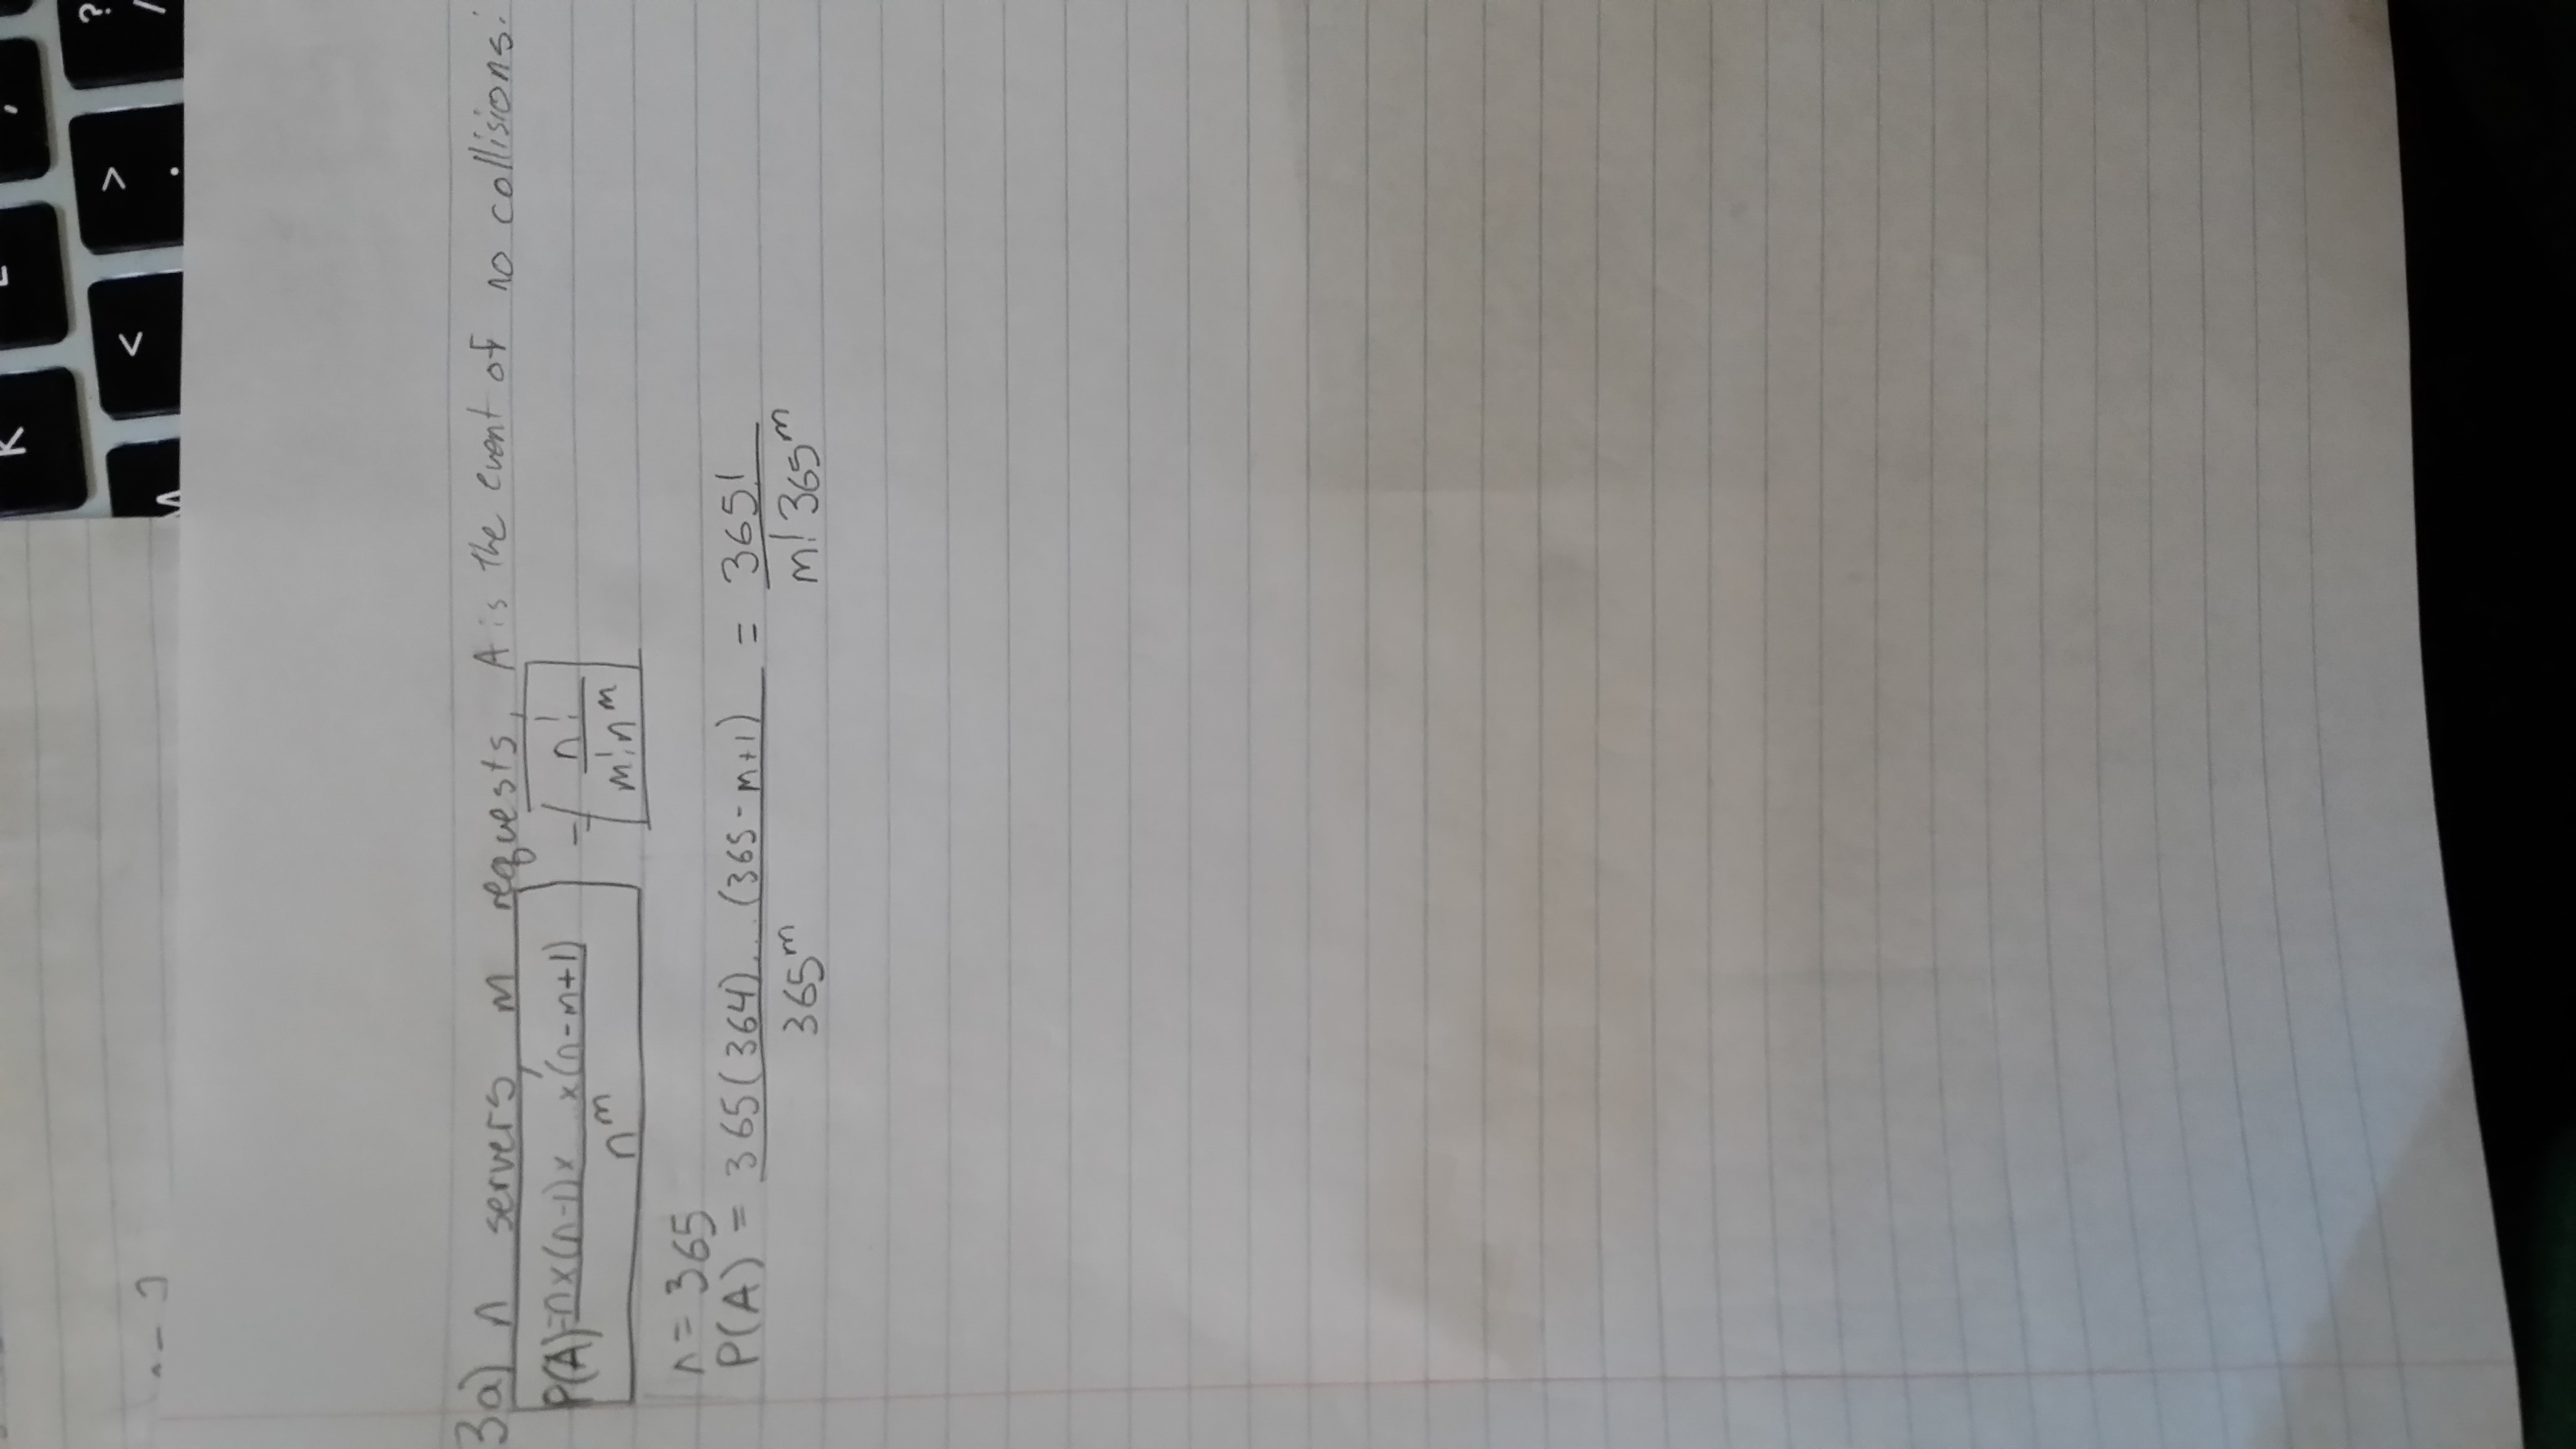 3a) n servers m requests, A is the event of no collisions:
P(A)=n x (n-1) x x(n-m+1) / n^m = n! / m!n^m
n = 365
P(A) = 365(364)...(365-m+1) / 365^m = 365! / m!365^m
K
<
>
.
,
?
/